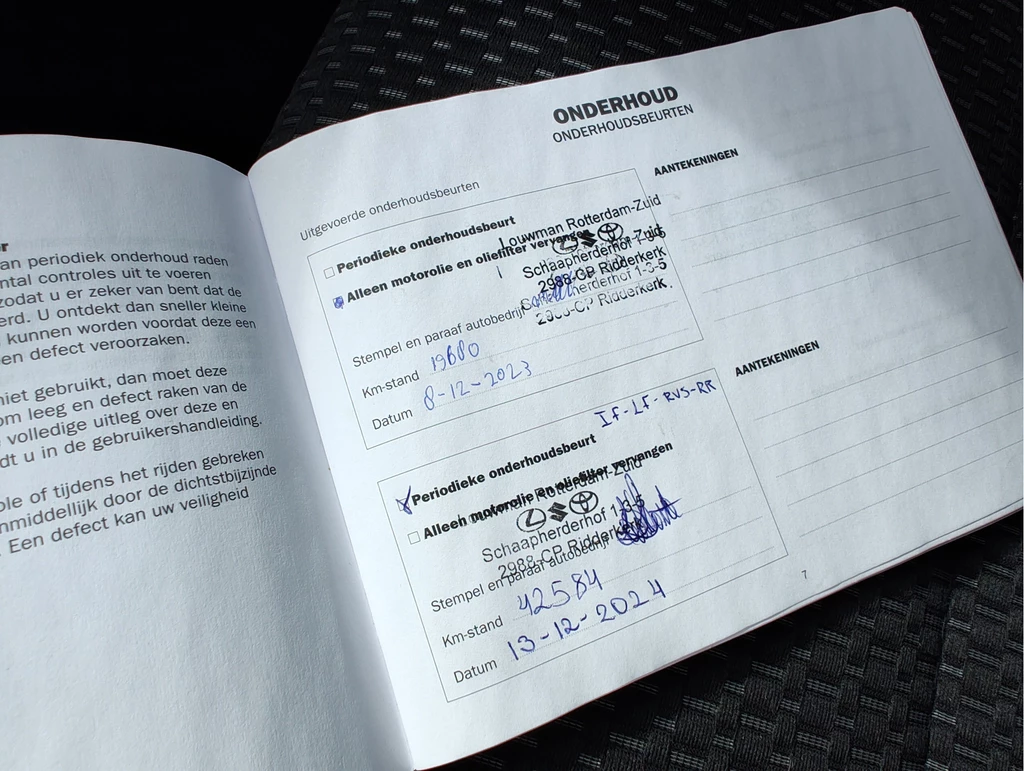 r
an periodiek onderhoud raden
ntal controles uit te voeren
zodat u er zeker van bent dat de
erd. U ontdekt dan sneller kleine
kunnen worden voordat deze een
en defect veroorzaken.
niet gebruikt, dan moet deze
om leeg en defect raken van de
volledige uitleg over deze en
dt u in de gebruikershandleiding.
ole of tijdens het rijden gebreken
nmiddellijk door de dichtstbijzijnde
. Een defect kan uw veiligheid
ONDERHOUD
ONDERHOUDSBEURTEN
Uitgevoerde onderhoudsbeurten
AANTEKENINGEN
Periodieke onderhoudsbeurt
Louwman Rotterdam-Zuid
Alleen motorolie en oliefilter vervangen
Schaapherderhof 1-3-5
2988-CP Ridderkerk
Schaapherderhof 1-3-5
2988-CP Ridderkerk.
Stempel en paraaf autobedrijf
Km-stand 19680
Datum 8-12-2023
AANTEKENINGEN
IF-LF-RVS-RR
Periodieke onderhoudsbeurt
Alleen motorolie en oliefilter vervangen
Louwman Rotterdam-Zuid
Schaapherderhof 1-3-5
2988-CP Ridderkerk
Stempel en paraaf autobedrijf
Km-stand 42584
Datum 13-12-2024
7